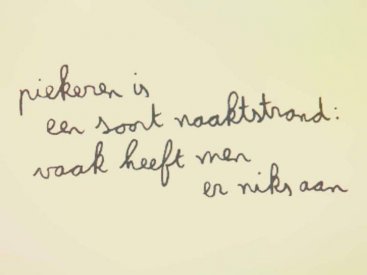 piekeren is
een soort naaktstrand:
vaak heeft men
er niks aan